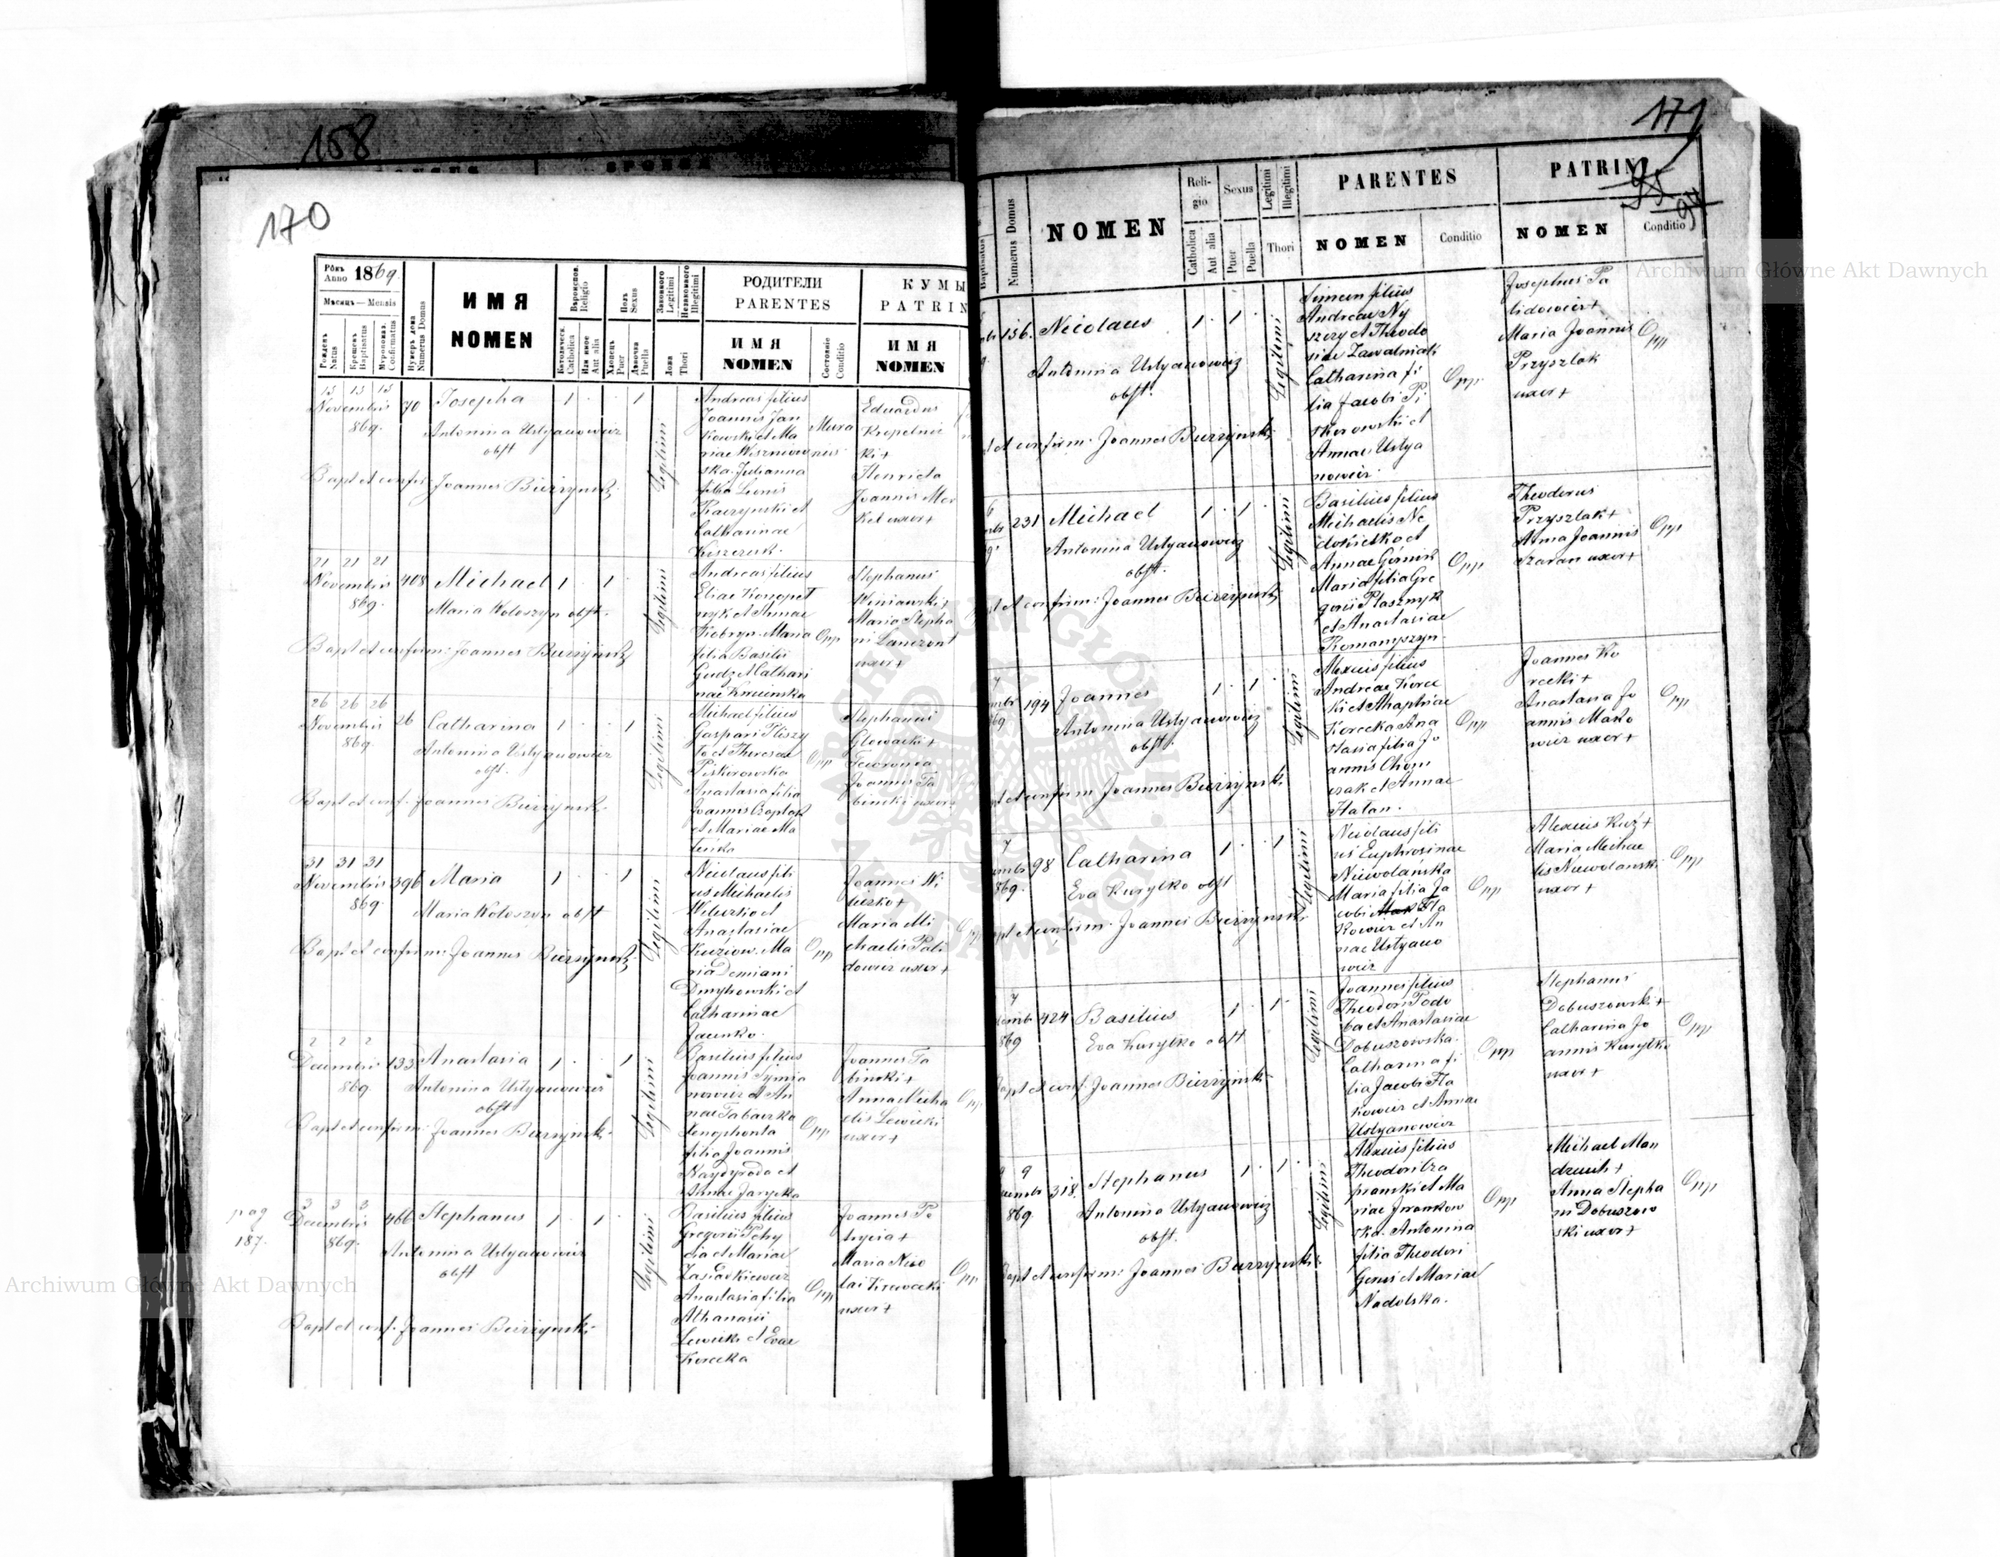 158
170
Рôкъ
Anno 1869
Мѣсяць — Mensis
Рожденъ
Natus
Крещенъ
Baptisatus
Мѵропомаз.
Confirmatus
Нумеръ дома
Numerus Domus
ИМЯ
NOMEN
Вѣроиспов.
Religio
Католическ.
Catholica
Или иное
Aut alia
Полъ
Sexus
Хлопець
Puer
Дѣвочка
Puella
Законного
Legitimi
Незаконного
Illegitimi
Ложа
Thori
РОДИТЕЛИ
PARENTES
ИМЯ
NOMEN
Состояніе
Conditio
КУМЫ
PATRIN
ИМЯ
NOMEN
15 15 15
Novembris
869.
70
Josepha
1 1
Antonina Ustyanowicz
obst
Bapt et confir Joannes Bierzynski
Legitimi
Andreas filius
Joannis Jan
kowski et Ma
riae Wiszniow
ska. Julianna
filia Leonis
Kaczynski et
Catharinae
Eduardus
ki +
Henrieta
Joannis Mer
kel uxor +
21 21 21
Novembris
869.
408
Michael
1 1
Maria Koloszyn obst.
Bapt et confirm: Joannes Bierzynski
Legitimi
Andreas filius
Eliae Konopet
nyk et Annae
Kobryn. Maria
filia Basilii
Gudz et Cathari
nae
Opp
Stephanus
Winiawski +
Maria Stepha
ni
uxor +
26 26 26
Novembris
869
26
Catharina
1 1
Antonina Ustyanowicz
obst.
Bapt et conf. Joannes Bierzynski
Legitimi
Michael filius
Gaspari
et Theresae
Piskorowska
Anastasia filia
Joannis
et Mariae Ma
Opp
Stephanus
Glowacki +
Joannis Ta
binski uxor
31 31 31
Novembris
869.
396
Maria
1 1
Maria Koloszyn obst
Bapt et confirm: Joannes Bierzynski
Legitimi
Nicolaus fili
us Michaelis
et
Anastasiae
Kuziow. Ma
ria Demiani
Dmytrowski et
Catharinae
Jacenko.
Opp
Joannes Wi
liczko +
Maria Mi
chaelis Pali
dowicz uxor +
2 2 2
Decembris
869.
133
Anastasia
1 1
Antonina Ustyanowicz
obst
Bapt et confirm: Joannes Bierzynski
Legitimi
Basilius filius
Joannis Symia
nowicz et An
nae Tabaczka
Xenophonta
filia Joannis
et
Annae Jarycka
Opp
Joannes Ta
binski +
Anna Micha
elis Lewicki
uxor +
pag
187.
3 3 3
Decembris
869.
466
Stephanus
1 1
Antonina Ustyanowicz
obst
Bapt et conf. Joannes Bierzynski
Legitimi
Basilius filius
Gregorii
et Mariae
Zasiadkiewicz
Anastasia filia
Athanasii
Lewicki et Evae
Korecka
Opp
Joannes Po
Maria Nico
lai Krowecki
uxor +
Opp
171
95
94
Numerus Domus
NOMEN
Reli-
gio
Catholica
Aut alia
Sexus
Puer
Puella
Legitimi
Illegitimi
Thori
PARENTES
NOMEN
Conditio
PATRINI
NOMEN
Conditio
156.
Nicolaus
1 1
Antonina Ustyanowicz
obst.
et confirm: Joannes Bierzynski
Legitimi
Simeon filius
Andreae Ny
szczy et Theodo
siae Zawalniak
Catharina fi
lia Jacobi Pi
skorowski et
Annae Ustya
nowicz.
Opp.
Josephus Pa
lidowicz +
Maria Joannis
Przyszlak
uxor +
Opp
6
231
Michael
1 1
Antonina Ustyanowicz
obst.
et confirm: Joannes Bierzynski
Legitimi
Basilius filius
Michaelis Ne
et
Annae Górnik
Maria filia Gre
gorii Ptasznyk
et Anastasiae
Romanyszyn.
Opp
Theodorus
Przyszlak +
Anna Joannis
Szaran uxor +
Opp
7
869
194
Joannes
1 1
Antonina Ustyanowicz
obst.
et confirm Joannes Bierzynski
Legitimi
Alexius filius
Andreae Korec
ki et Agaphiae
Korecka Ana
stasia filia Jo
annis Chom
czak et Annae
Halan.
Opp
Joannes Ko
recki +
Anastasia Jo
annis Mako
wicz uxor +
Opp
7
869.
98
Catharina
1 1
Eva Kurylko obst
et confirm: Joannes Bierzynski
Legitimi
Nicolaus fili
us Euphrosinae
Niewolańska
Maria filia Ja
cobi Fla
kowicz et An
nae Ustyano
wicz
Opp
Alexius Kuź +
Maria Michae
lis Niewolanski
uxor +
Opp
7
869
424
Basilius
1 1
Eva Kurylko obst
Bapt et conf. Joannes Bierzynski
Legitimi
Joannes filius
Theodori Todo
ba et Anastasiae
Dobuszowska.
Catharina fi
lia Jacobi Fla
kowicz et Annae
Ustyanowicz
Opp
Stephanus
Dobuszowski +
Catharina Jo
annis Kurylko
uxor +
Opp
9
869
318.
Stephanus
1 1
Antonina Ustyanowicz
obst.
Bapt et confirm: Joannes Bierzynski
Legitimi
Alexius filius
Theodori Cza
pranski et Ma
riae Iwankow
ska. Antonina
filia Theodori
et Mariae
Nadolska.
Opp
Michael Man
dziuk +
Anna Stepha
ni Dobuszow
ski uxor +
Opp
Archiwum Główne Akt Dawnych
Archiwum Główne Akt Dawnych